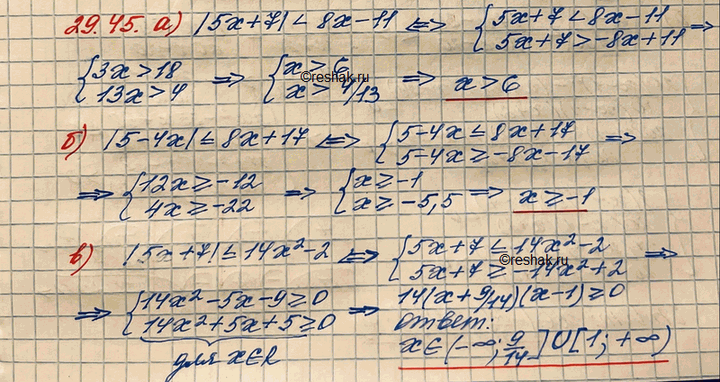 29.45. а) |5x+7| < 8x-11 <=> { 5x+7 < 8x-11
5x+7 > -8x+11 =>
{ 3x > 18
13x > 4 => { x > 6
x > 4/13 => x > 6
©reshak.ru
б) |5-4x| ≤ 8x+17 <=> { 5-4x ≤ 8x+17
5-4x ≥ -8x-17 =>
=> { 12x ≥ -12
4x ≥ -22 => { x ≥ -1
x ≥ -5,5 => x ≥ -1
в) |5x+7| ≤ 14x²-2 <=> { 5x+7 ≤ 14x²-2
5x+7 ≥ -14x²+2 =>
©reshak.ru
=> { 14x²-5x-9 ≥ 0
14x²+5x+5 ≥ 0 => 14(x+9/14)(x-1) ≥ 0
для x∈R
ответ:
x∈(-∞; 9/14] U [1; +∞)